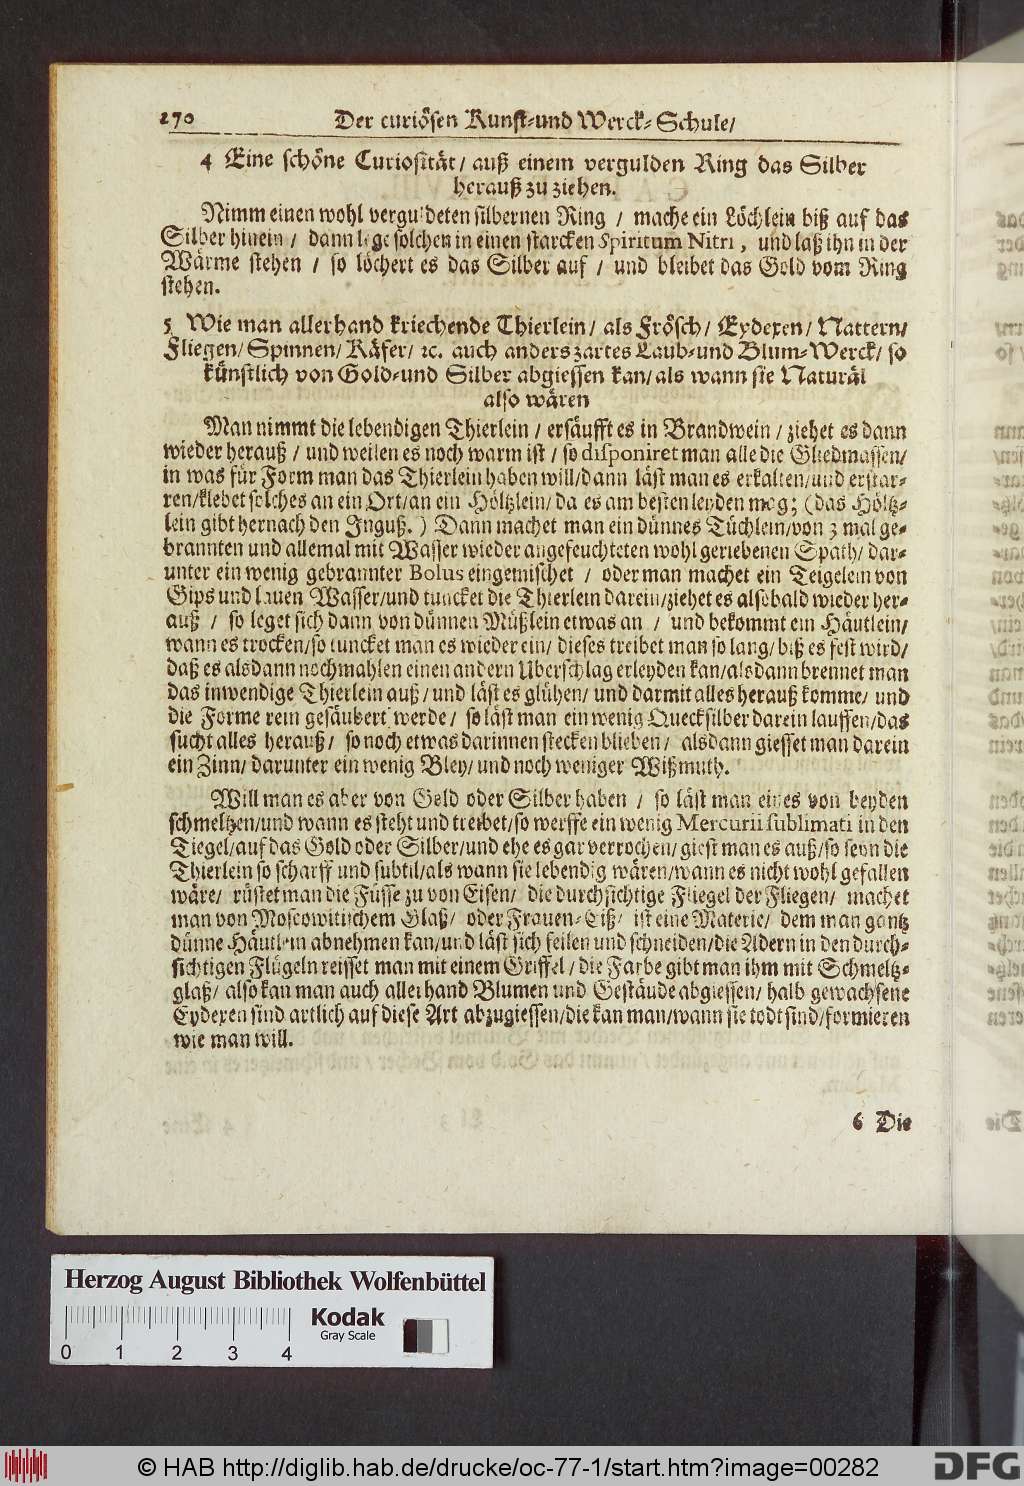 270 Der curiösen Kunst-und Werck-Schule/
4 Eine schöne Curiosität/ auß einem vergulden Ring das Silber
herauß zu ziehen.
Nimm einen wohl verguldeten silbernen Ring / mache ein Löchlein biß auf das
Silber hinein / dann lege solchen in einen starcken Spiritum Nitri, und laß ihn in der
Wärme stehen / so löchert es das Silber auf / und bleibet das Gold vom Ring
stehen.
5 Wie man allerhand kriechende Thierlein/ als Frösch/ Eydexen/ Nattern/
Fliegen/ Spinnen/ Käfer/ ꝛc. auch anders zartes Laub-und Blum-Werck/ so
künstlich von Gold-und Silber abgiessen kan/ als wann sie Naturäl
also wären
Man nimmt die lebendigen Thierlein / ersäufft es in Brandwein / ziehet es dann
wieder herauß / und weilen es noch warm ist / so disponiret man alle die Gliedmassen/
in was für Form man das Thierlein haben will/ dann läst man es erkalten/ und erstar-
ren/ klebet solches an ein Ort/ an ein Höltzlein/ da es am besten leyden mag; (das Höltz-
lein gibt hernach den Inguß.) Dann machet man ein dünnes Tüchlein/ von 3 mal ge-
brannten und allemal mit Wasser wieder angefeuchteten wohl geriebenen Spath/ dar-
unter ein wenig gebrannter Bolus eingemischet / oder man machet ein Teigelein von
Gips und lauen Wasser/ und tuncket die Thierlein darein/ ziehet es alsobald wieder her-
auß / so leget sich dann von dünnen Müßlein etwas an / und bekommt ein Häutlein/
wann es trocken/ so tuncket man es wieder ein/ dieses treibet man so lang/ biß es fest wird/
daß es alsdann nochmahlen einen andern Uberschlag erleyden kan/ alsdann brennet man
das inwendige Thierlein auß/ und läst es glühen/ und darmit alles herauß komme/ und
die Forme rein gesäubert werde/ so läst man ein wenig Quecksilber darein lauffen/ das
sucht alles herauß/ so noch etwas darinnen stecken blieben/ alsdann giesset man darein
ein Zinn/ darunter ein wenig Bley/ und noch weniger Wißmuth.
Will man es aber von Gold oder Silber haben / so läst man eines von beyden
schmeltzen/ und wann es steht und treibet/ so werffe ein wenig Mercurii sublimati in den
Tiegel/ auf das Gold oder Silber/ und ehe es gar verrochen/ giest man es auß/ so seyn die
Thierlein so scharff und subtil/ als wann sie lebendig wären/ wann es nicht wohl gefallen
wäre/ rüstet man die Füsse zu von Eisen/ die durchsichtige Fliegel der Fliegen/ machet
man von Moscowitischem Glaß/ oder Frauen-Eiß/ ist eine Materie/ dem man gantz
dünne Häutlein abnehmen kan/ und läst sich feilen und schneiden/ die Adern in den durch-
sichtigen Flügeln reisset man mit einem Griffel/ die Farbe gibt man ihm mit Schmeltz-
glaß/ also kan man auch allerhand Blumen und Gestäude abgiessen/ halb gewachsene
Eydexen sind artlich auf diese Art abzugiessen/ die kan man/ wann sie todt sind/ formieren
wie man will.
6 Die
Herzog August Bibliothek Wolfenbüttel
Kodak
Gray Scale
0 1 2 3 4
© HAB http://diglib.hab.de/drucke/oc-77-1/start.htm?image=00282
DFG